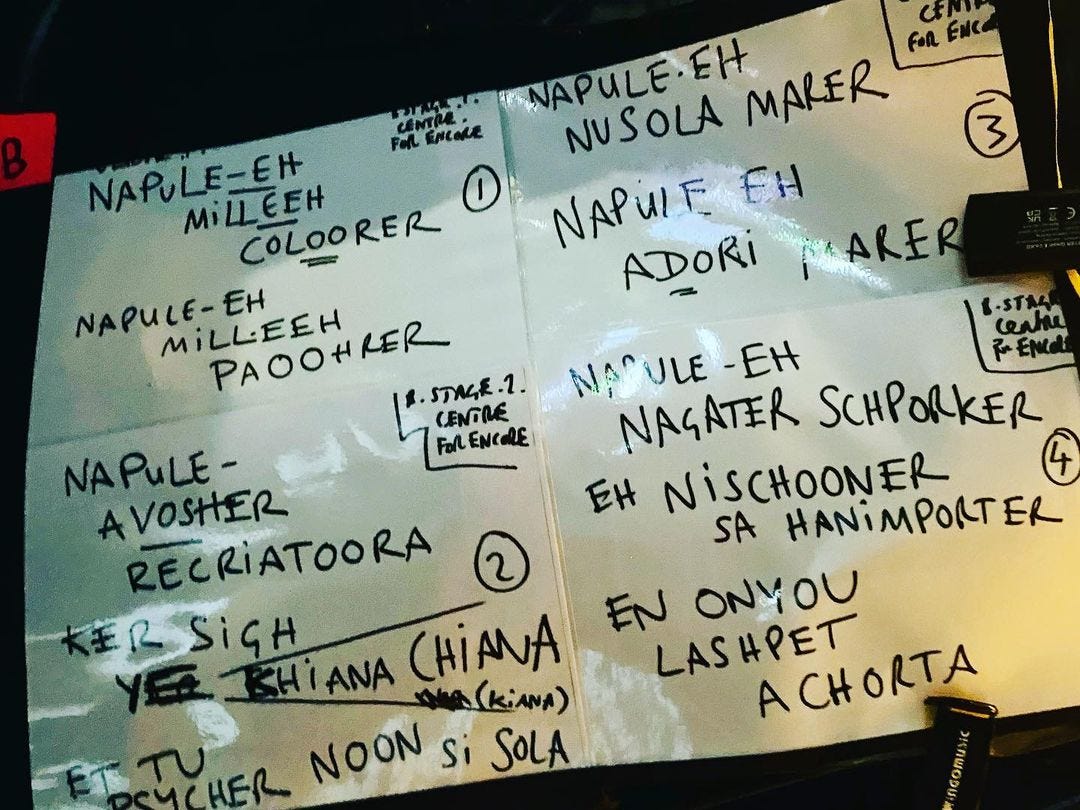 B
B.STAGE.1.
CENTRE.
FOR ENCORE
NAPULE-EH
MILLEEH
COLOORER
1
NAPULE-EH
MILL-EEH
PAOOHRER
B.STAGE.2.
CENTRE
FOR ENCORE
NAPULE-
AVOSHER
RECRIATOORA
2
KER SIGH
CHIANA
KHIANA
(KIANA)
ET TU
PSYCHER NOON Si SOLA
CENTRE
FOR ENCO
NAPULE.EH
NUSOLA MARER
3
NAPULE EH
ADORi MARER
B.STAGE
Centre
For ENCOR
NAPULE-EH
NAGATER SCHPORKER
4
EH NiSCHOONER
SA HANIMPORTER
EN ONYOU
LASHPET
A CHORTA
ngomusic